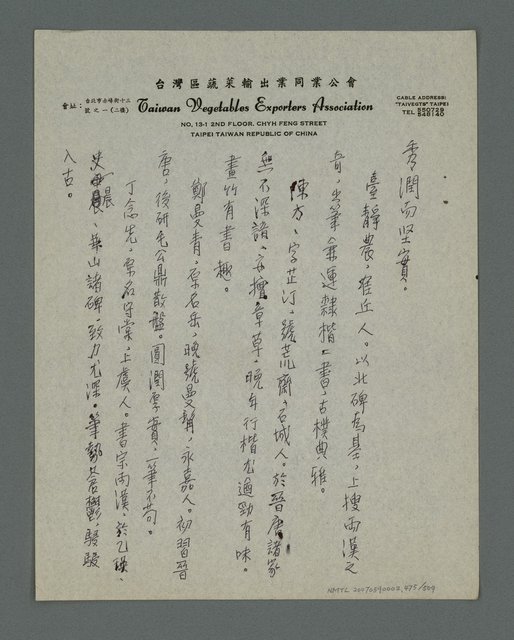 台灣區蔬菜輸出業同業公會
會址：台北市赤峰街十三號之一（二樓）
Taiwan Vegetables Exporters Association
NO. 13-1 2ND FLOOR. CHYH FENG STREET
TAIPEI TAIWAN REPUBLIC OF CHINA
CABLE ADDRESS:
"TAIVEGTS" TAIPEI
TEL 550729
548140
秀潤而坚實。
臺靜農，霍丘人。以北碑為基，上搜兩漢之
奇，出筆兼運隸楷二書，古樸典雅。
陳方，字芷汀，號荒齋，石城人。於晉唐諸家
無不深諳，亦擅章草，晚年行楷尤遒勁有味。
畫竹有書趣。
鄭曼青，原名岳，晚號曼髯，永嘉人。初習晉
唐，後研毛公鼎散盤。圓潤厚實，一筆不苟。
丁念先，原名守棠，上虞人。書宗兩漢，於乙瑛、
史晨、華山諸碑，致力尤深。筆勢蒼鬱，駸駸
入古。
NMTL 20070590002, 475/509